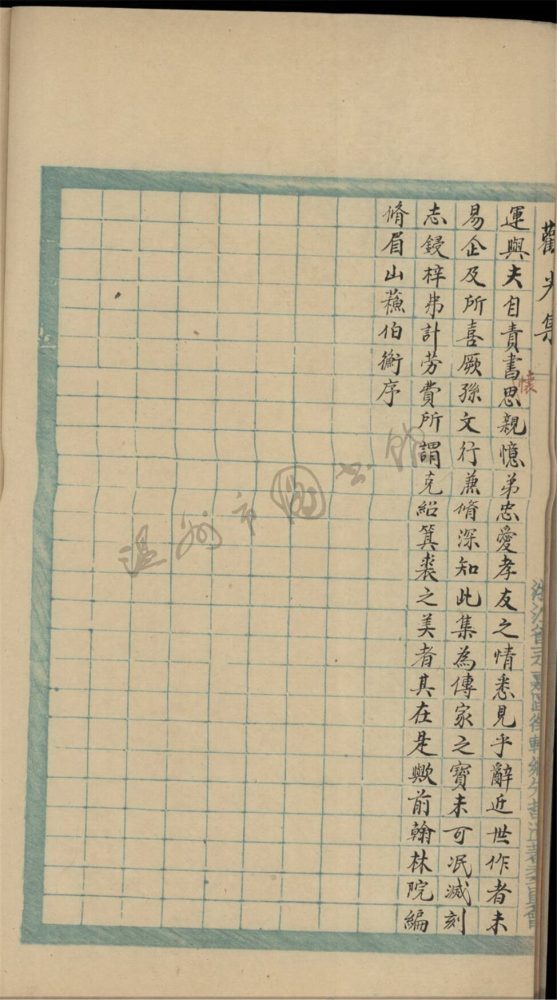 觀光集
運與夫自責書思親憶弟忠愛孝友之情悉見乎辭近世作者未
懐
易企及所喜厥孫文行兼脩深知此集為傳家之寶未可泯滅刻
志鋟梓弗計勞費所謂克紹箕裘之美者其在是歟前翰林院編
脩眉山蘓伯衡序
温州市图书馆